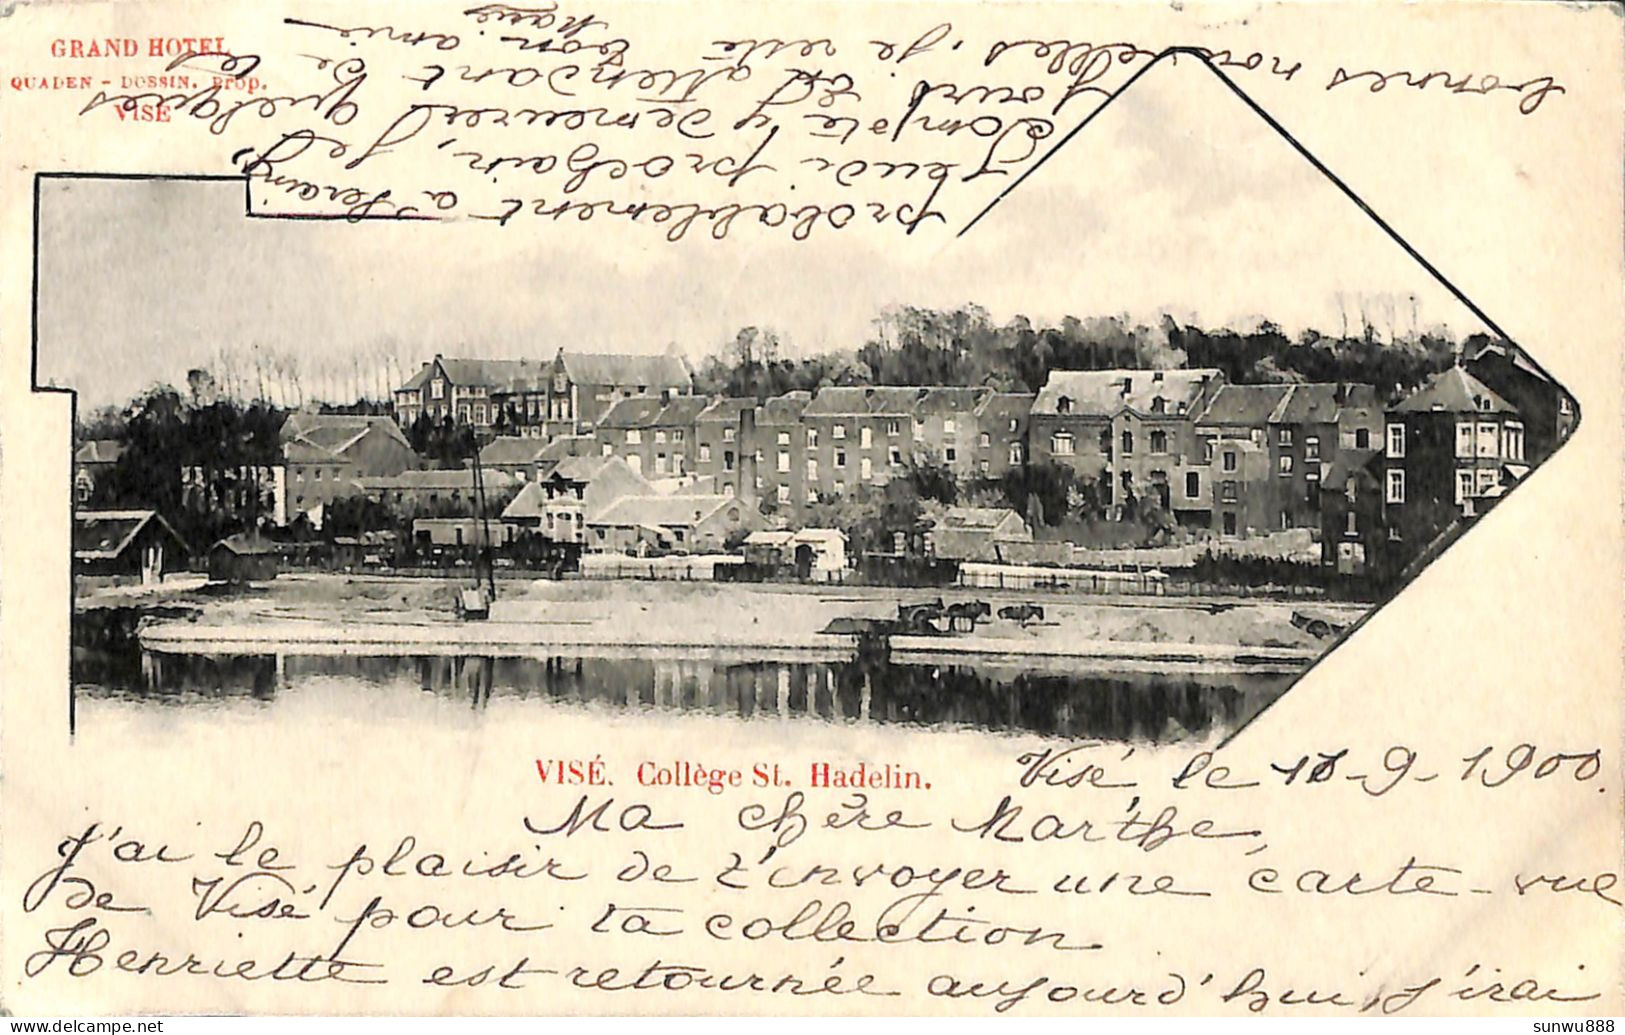 GRAND HOTEL
QUADEN - DOSSIN. Prop.
VISÉ
VISÉ. Collège St. Hadelin.
Visé le 18-9-1900.
Ma chère Marthe,
J'ai le plaisir de t'envoyer une carte-vue
de Visé pour ta collection
Henriette est retournée aujourd'hui, j'irai
probablement à Seraing,
jeudi prochain, je
compte y demeurer quelques
jours. En attendant de tes
bonnes nouvelles, je reste ton amie
delcampe.net
sunwu888